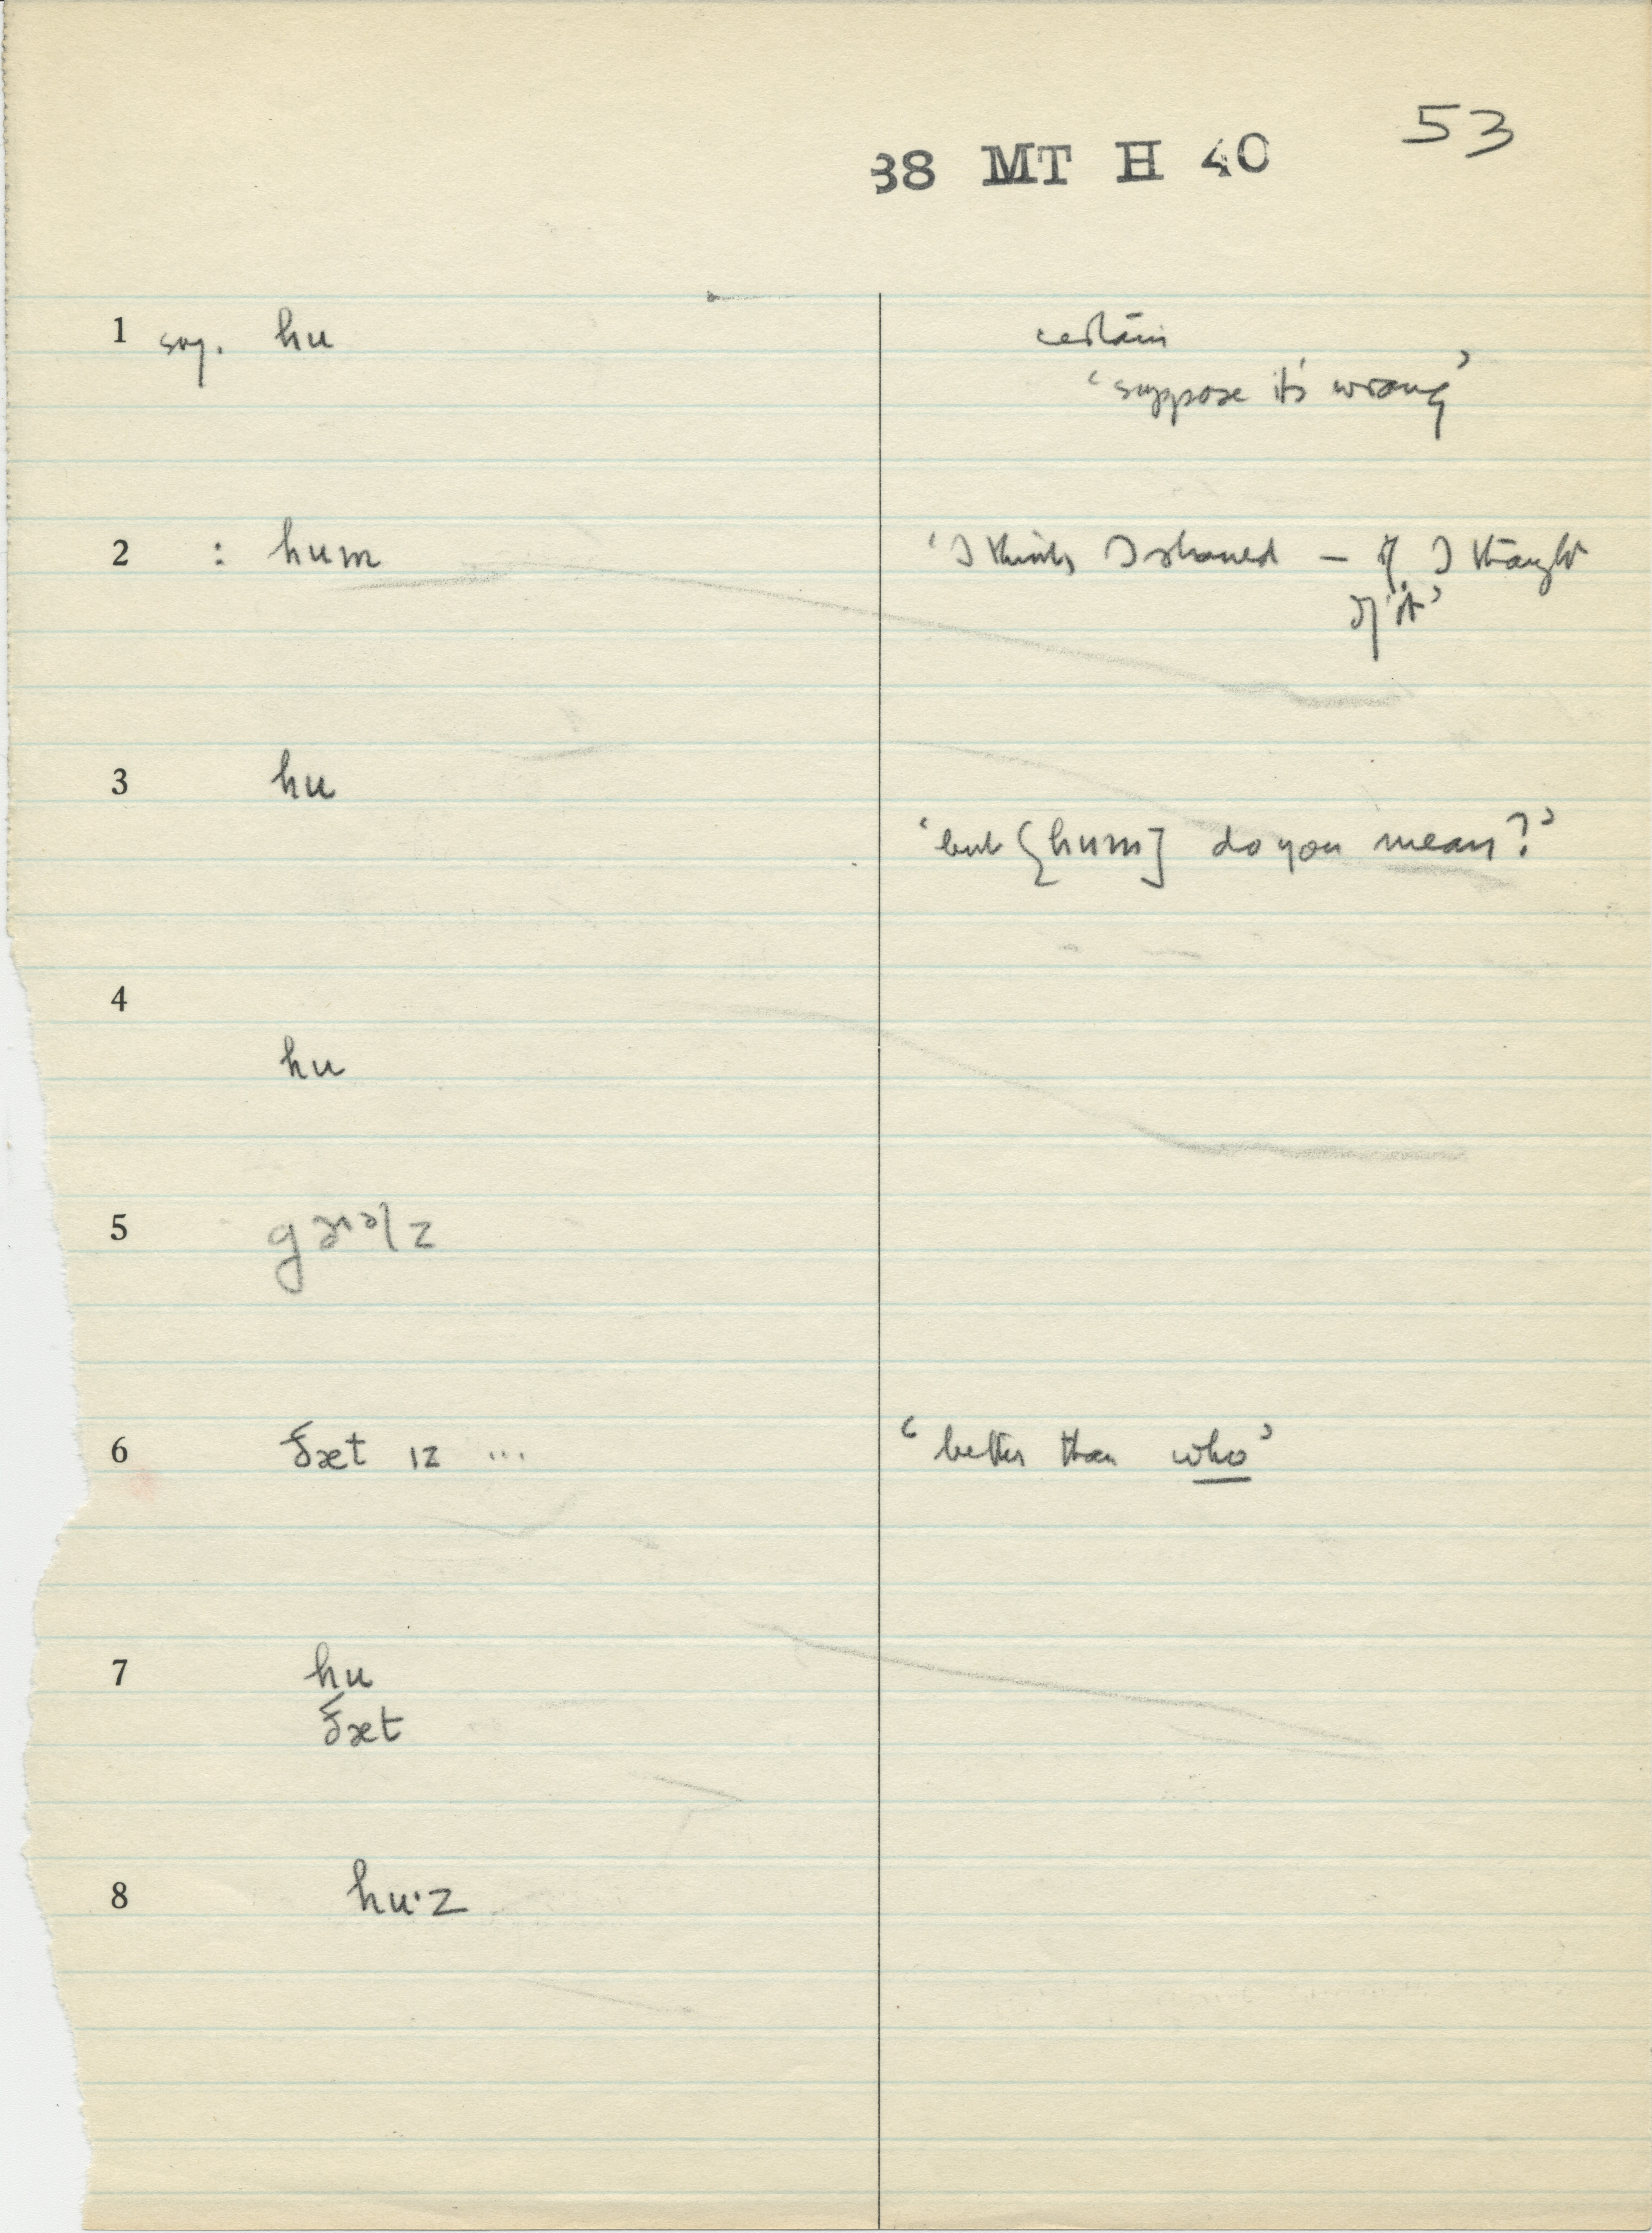 53
38 MT H 40
1 sug. hu
certain
‘suppose it's wrong’
2 : hum
‘I think I should – if I thought
of it’
3 hu
‘but [hum] do you mean?’
4
hu
5
6 ðæt ɪz ...
‘better than who’
7 hu
ðæt
8 hu·z